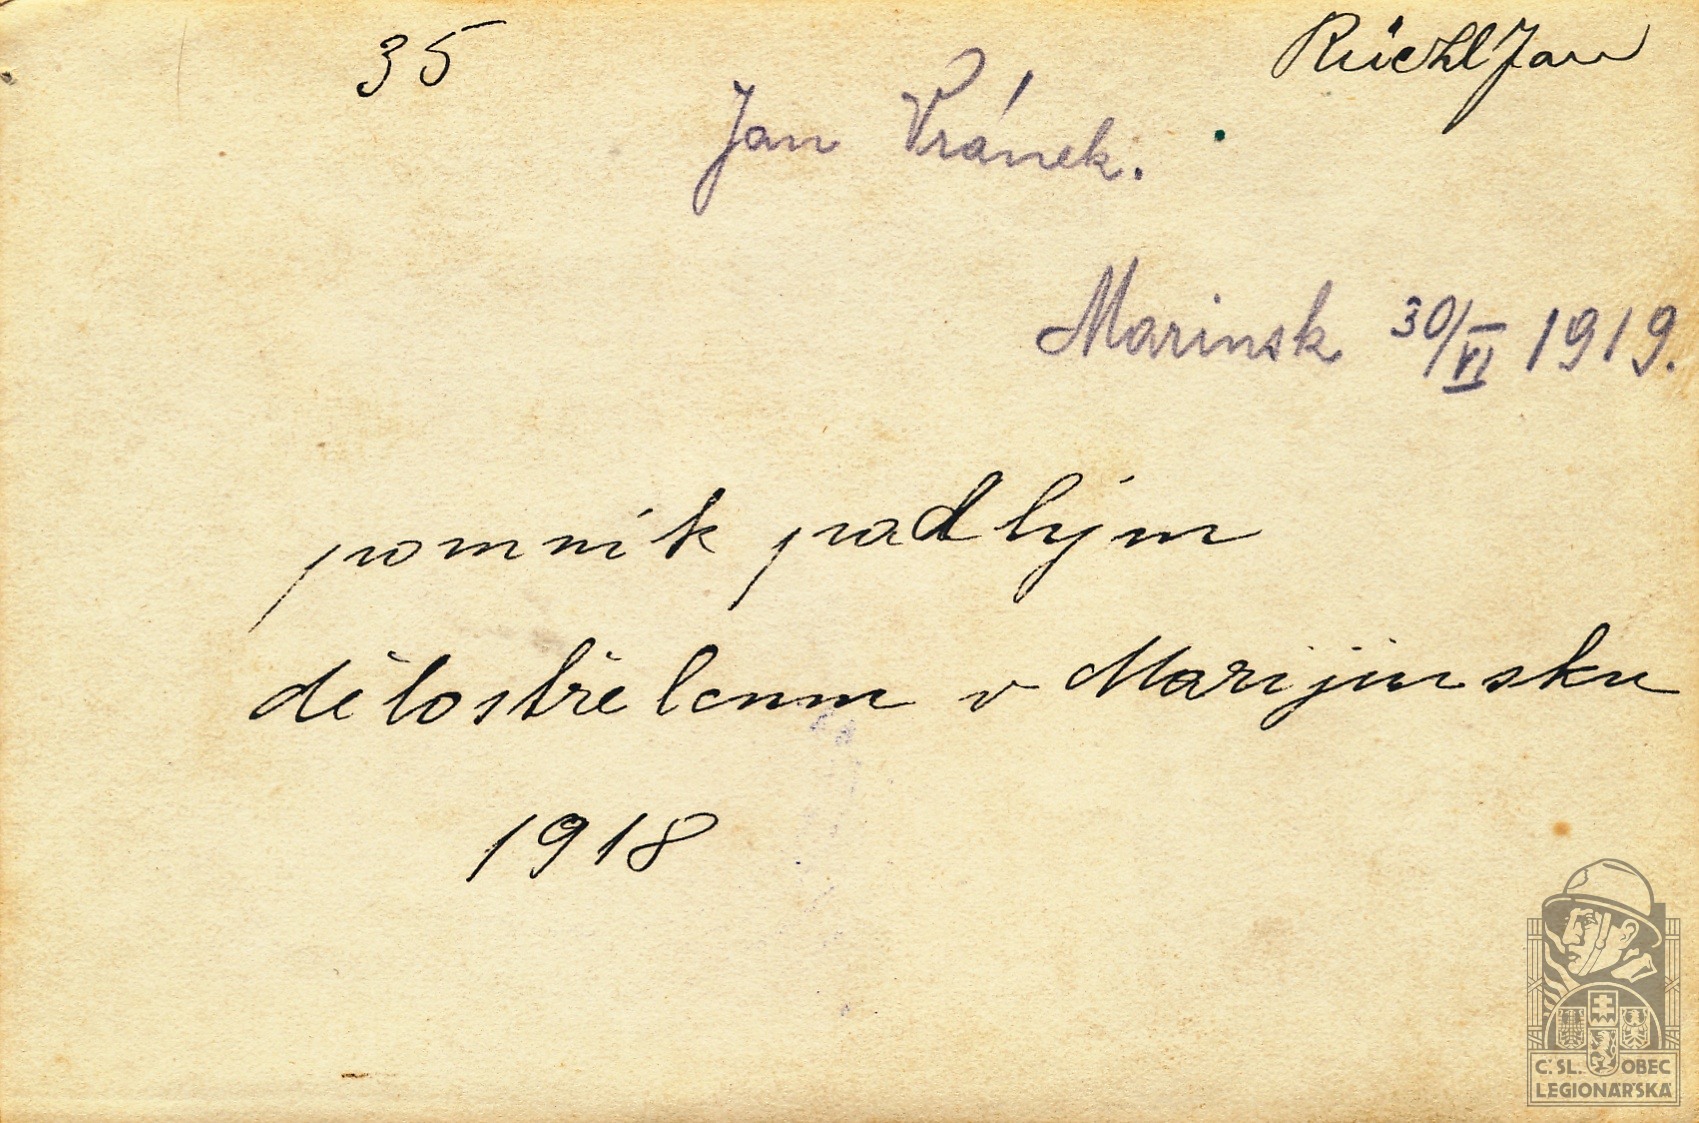 35
Rüchl Jan
Jan Vránek.
Marinsk 30/VI 1919.
pomník padlým
dělostřelcum v Marijinsku
1918
Č.SL. OBEC
LEGIONÁŘSKÁ